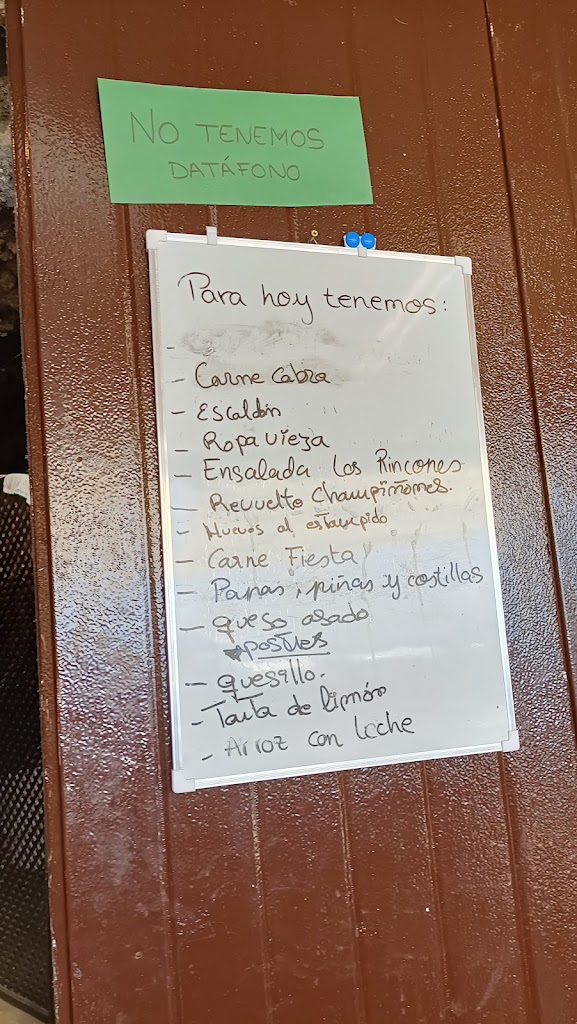 NO TENEMOS
DATÁFONO
Para hoy tenemos:
-
- Carne Cabra
- Escaldón
- Ropa vieja
- Ensalada Los Rincones
- Revuelto Champiñones.
- Huevos al estampido
- Carne Fiesta
- Papas, piñas y costillas
- queso asado
postres
- quesillo.
- Tarta de limón
- Arroz con leche